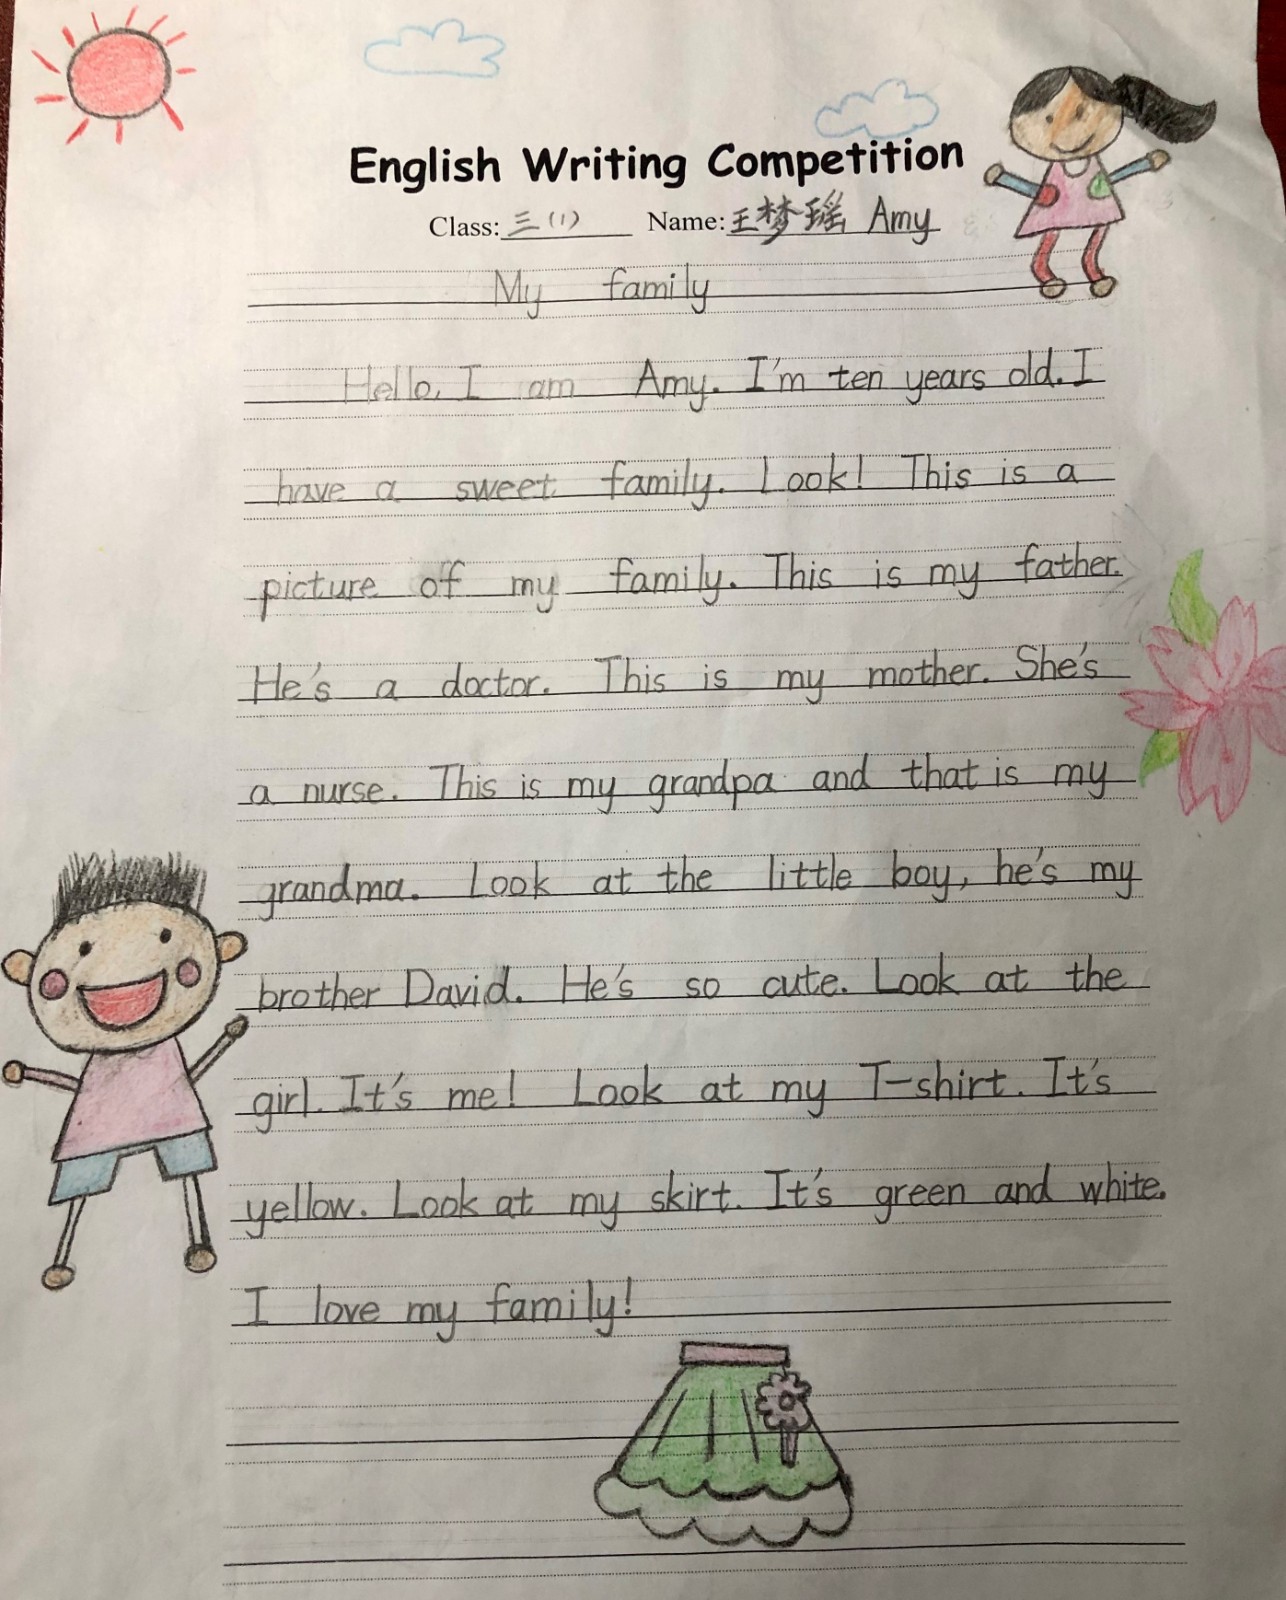 English Writing Competition
Class: 三(1) Name: 王梦瑶 Amy
My family
Hello, I am Amy. I'm ten years old. I
have a sweet family. Look! This is a
picture of my family. This is my father.
He's a doctor. This is my mother. She's
a nurse. This is my grandpa and that is my
grandma. Look at the little boy, he's my
brother David. He's so cute. Look at the
girl. It's me! Look at my T-shirt. It's
yellow. Look at my skirt. It's green and white.
I love my family!